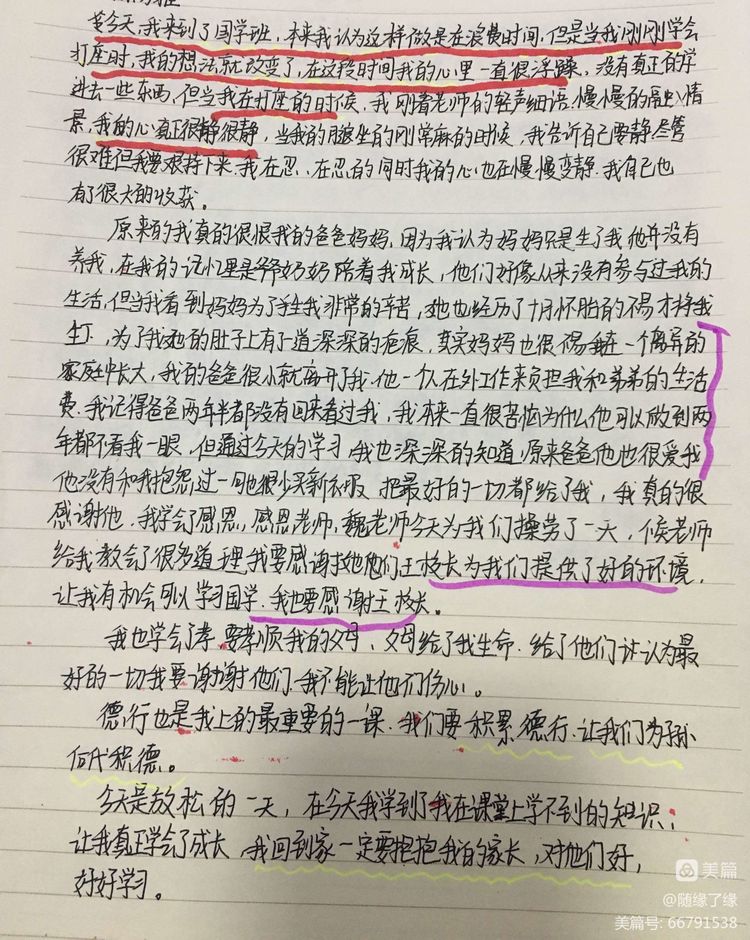 今天,我来到了国学班,本来我认为这样做是在浪费时间,但是当我刚刚学会
打座时,我的想法就改变了,在这段时间我的心里一直很浮躁,没有真正的学
进去一些东西,但当我在打座的时候,我刚着老师的轻声细语,慢慢的 情
景,我的心真正很静很静,当我的腿坐的刚常麻的时候,我告诉自己要静尽管
很难但我要艰持下来.我在忍、在忍的同时我的心也在慢慢变静.我自己也
有了很大的收获。
原来的我真的很恨我的爸爸妈妈,因为我认为妈妈只是生了我他并没有
养我,在我的记忆里是爷奶奶陪着我成长,他们好像从来没有参与过我的
生活,但当我看到妈妈为了生我非常的辛苦,她也经历了十月怀胎的不易才将我
生下,为了我她的肚子上有了一道深深的疤痕,其实妈妈也很不易 在一个离异的
家庭中长大,我的爸爸很小就离开了我.他一个人在外工作来负担我和弟弟的生活
费.我记得爸爸两年半都没有回来看过我,我本来一直很苦恼为什么他可以放到两
年都不看我一眼,但通过今天的学习,我也深深的知道,原来爸爸他也很爱我
他没有和我抱怨过一句他很少买新衣服,把最好的一切都给了我,我真的很
感谢他,我学会了感恩,感恩老师,魏老师今天为我们操劳了一天,候老师
给我教会了很多道理,我要感谢 她他们王校长为我们提供了好的环境,
让我有机会可以学习国学.我也要感谢王校长。
我也学会了孝,要孝顺我的父母,父母给了我生命.给了他们 认为最
好的一切我要谢谢他们.我不能让他们伤心。
德行也是我上的最重要的一课.我们要积累德行.让我们为
何代积德。
今天是放松的一天,在今天我学到了我在课堂上学不到的知识;
让我真正学会了成长,我回到家一定要抱抱我的家长,对他们好,
好好学习。
美篇
@随缘了缘
美篇号: 66791538